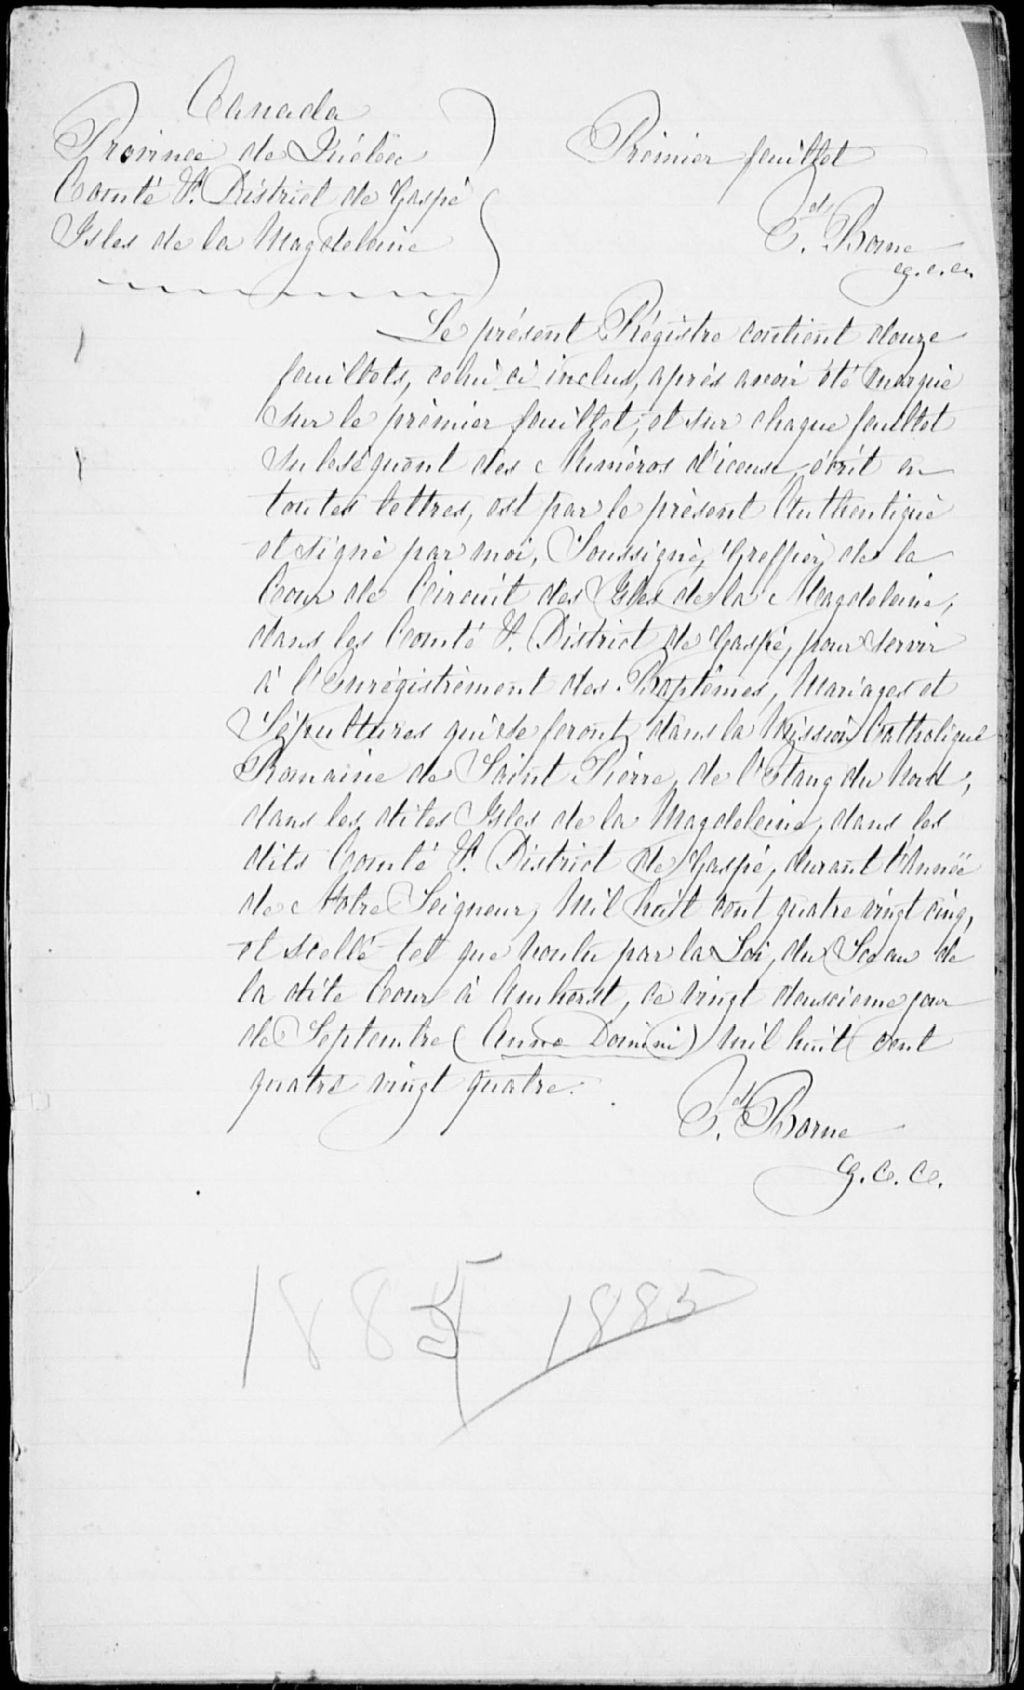 Canada
Province de Québec
Comté & District de Gaspé
Isles de la Magdeleine
Prémier feuillet
Ed. Borne
g.c.c.
Le présent Régistre contient douze
feuillets, celui ci inclus, après avoir été marqué
sur le prémier feuillet, et sur chaque feuillet
subséquent des Numéros d'iceux, écrit en
toutes lettres, est par le présent Authentiqué
et signé par moi, Soussigné, Greffier de la
Cour de Circuit des Isles de la Magdeleine,
dans les Comté & District de Gaspé, pour servir
à l'Enrégistrement des Baptêmes, Mariages et
Sépultures qui se feront dans la Mission Catholique
Romaine de Saint Pierre, de l'Etang du Nord,
dans les dites Isles de la Magdeleine, dans les
dits Comté & District de Gaspé, durant l'Année
de Notre Seigneur, Mil huit cent quatre vingt cinq,
et scellé tel que voulu par la Loi, du Sceau de
la dite Cour à Amherst, ce vingt deuxieme jour
de Septembre (Anno Domini) mil huit cent
quatre vingt quatre.
Ed. Borne
G.C.C.
1885 1885